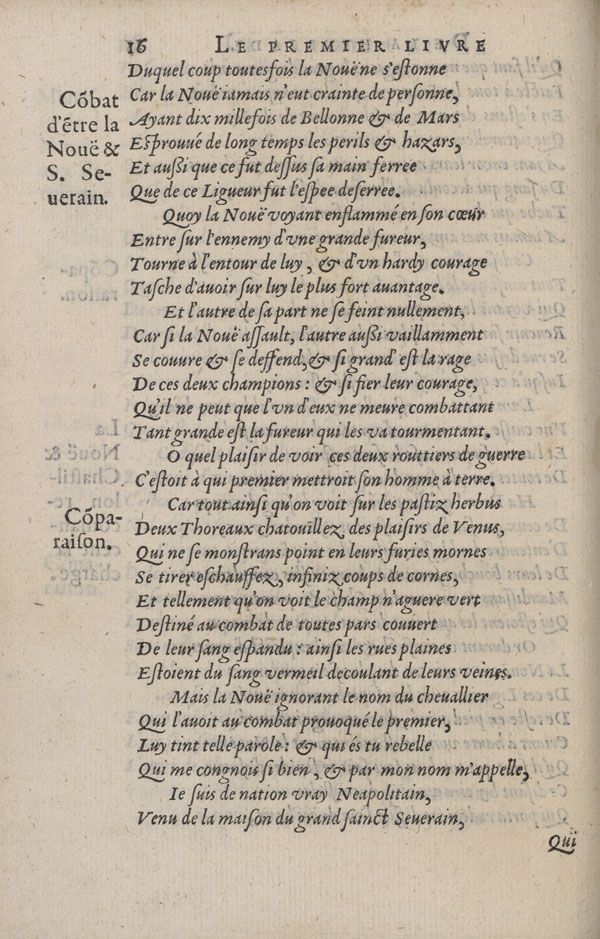 16 LE PREMIER LIVRE
Duquel coup toutesfois la Nouë ne s'eſtonne
Car la Nouë iamais n'eut crainte de perſonne,
Ayant dix mille fois de Bellonne & de Mars
Eſprouué de long temps les perils & hazars,
Et auſſi que ce fut deſſus ſa main ferree
Que de ce Ligueur fut l'eſpee deſerree.
Cõbat
d'ẽtre la
Nouë &
S. Se-
uerain.
Quoy la Nouë voyant enflammé en ſon cœur
Entre ſur l'ennemy d'vne grande fureur,
Tourne à l'entour de luy, & d'vn hardy courage
Taſche d'auoir ſur luy le plus fort auantage.
Et l'autre de ſa part ne ſe feint nullement,
Car ſi la Nouë aſſault, l'autre auſſi vaillamment
Se couure & ſe deffend, & ſi grand' eſt la rage
De ces deux champions : & ſi fier leur courage,
Qu'il ne peut que l'vn d'eux ne meure combattant
Tant grande eſt la fureur qui les va tourmentant.
O quel plaiſir de voir ces deux routtiers de guerre
C'eſtoit à qui premier mettroit ſon homme à terre.
Car tout ainſi qu'on voit ſur les paſtiz herbus
Cõpa-
raiſon.
Deux Thoreaux chatouillez des plaiſirs de Venus,
Qui ne ſe monſtrans point en leurs furies mornes
Se tirer eſchauffez, infiniz coups de cornes,
Et tellement qu'on voit le champ n'aguere vert
Deſtiné au combat de toutes pars couuert
De leur ſang eſpandu : ainſi les rues plaines
Eſtoient du ſang vermeil decoulant de leurs veines.
Mais la Nouë ignorant le nom du cheuallier
Qui l'auoit au combat prouoqué le premier,
Luy tint telle parole : & qui és tu rebelle
Qui me congnois ſi bien, & par mon nom m'appelle,
Ie ſuis de nation vray Neapolitain,
Venu de la maiſon du grand ſainct Seuerain,
Qui